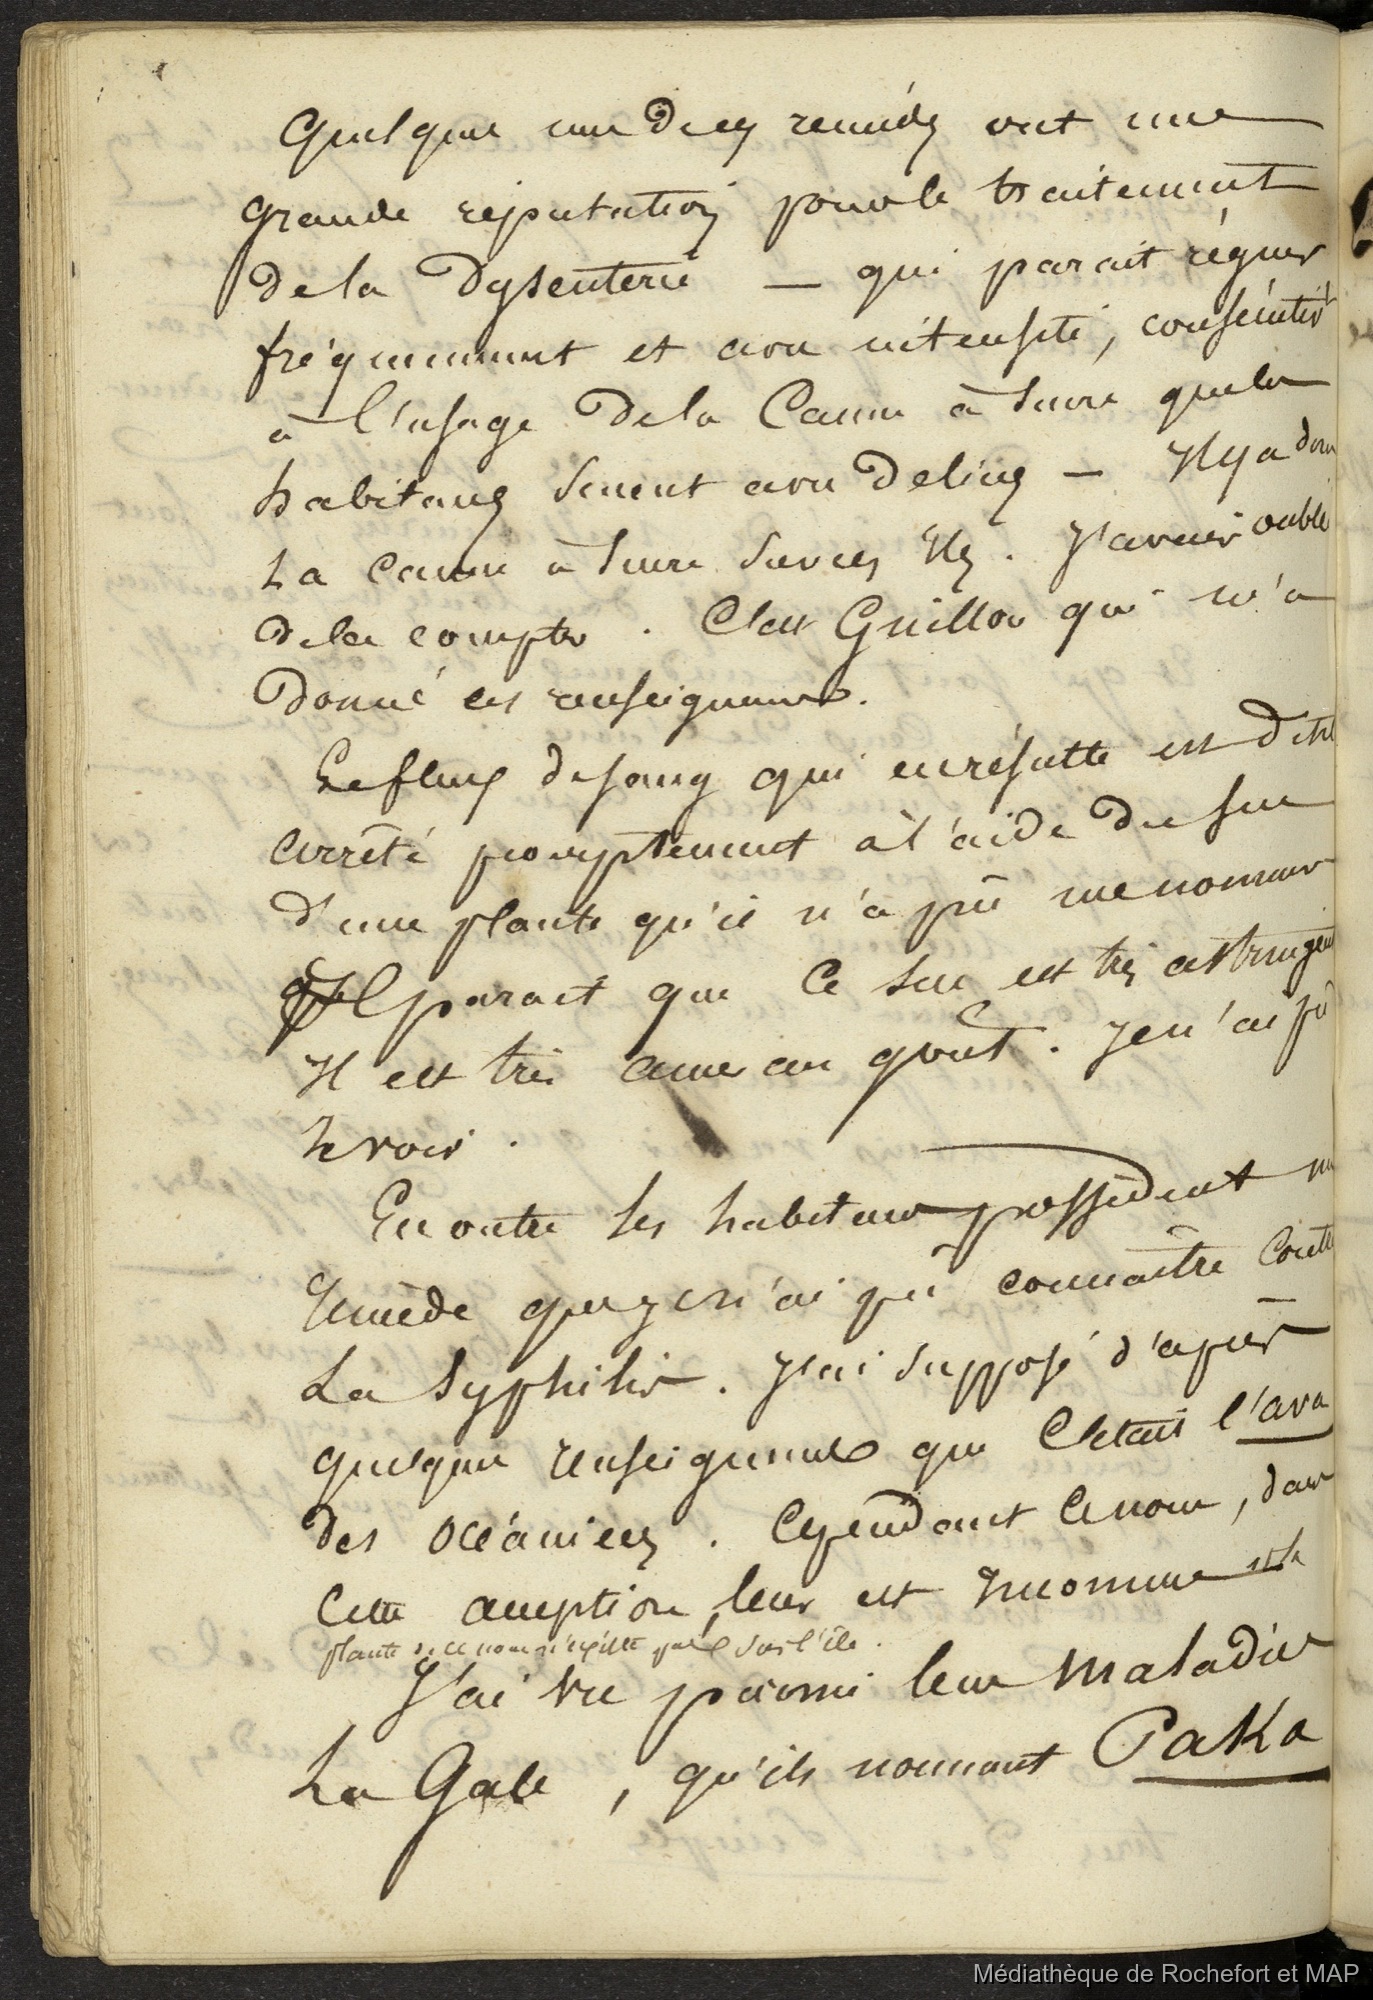 Quelques uns de ces remèdes ont une
grande réputation pour le traitement
de la Dysenterie — qui parait régner
fréquemment et avec intensité, consécutivt
à l'usage de la Canne à sucre que les
habitans sucent avec delices — Il y a donc
La canne à sucre sur ces Iles. J'avais oublié
de la compter. C'est Guillou qui m'a
Donné ces renseignemens.
Le flux de sang qui en résulte est dit-il
arrêté promptement à l'aide du suc
d'une plante qu'il n'a pu me nommer
Il parait que ce suc est très astringent
Il est très amer au goût. Je n'ai pu
le voir.
En outre les habitans possèdent un
remède que je n'ai pu connaître contre
La Syphilis. J'ai supposé d'après
quelques renseignemens que C'était l'ava
des océaniens. Cependant ce nom, dans
cette acception, leur est Inconnu et la
plante de ce nom n'existe pas sur l'île.
J'ai vu parmi leurs Maladies
La Gale, qu'ils nomment Paka
Médiathèque de Rochefort et MAP